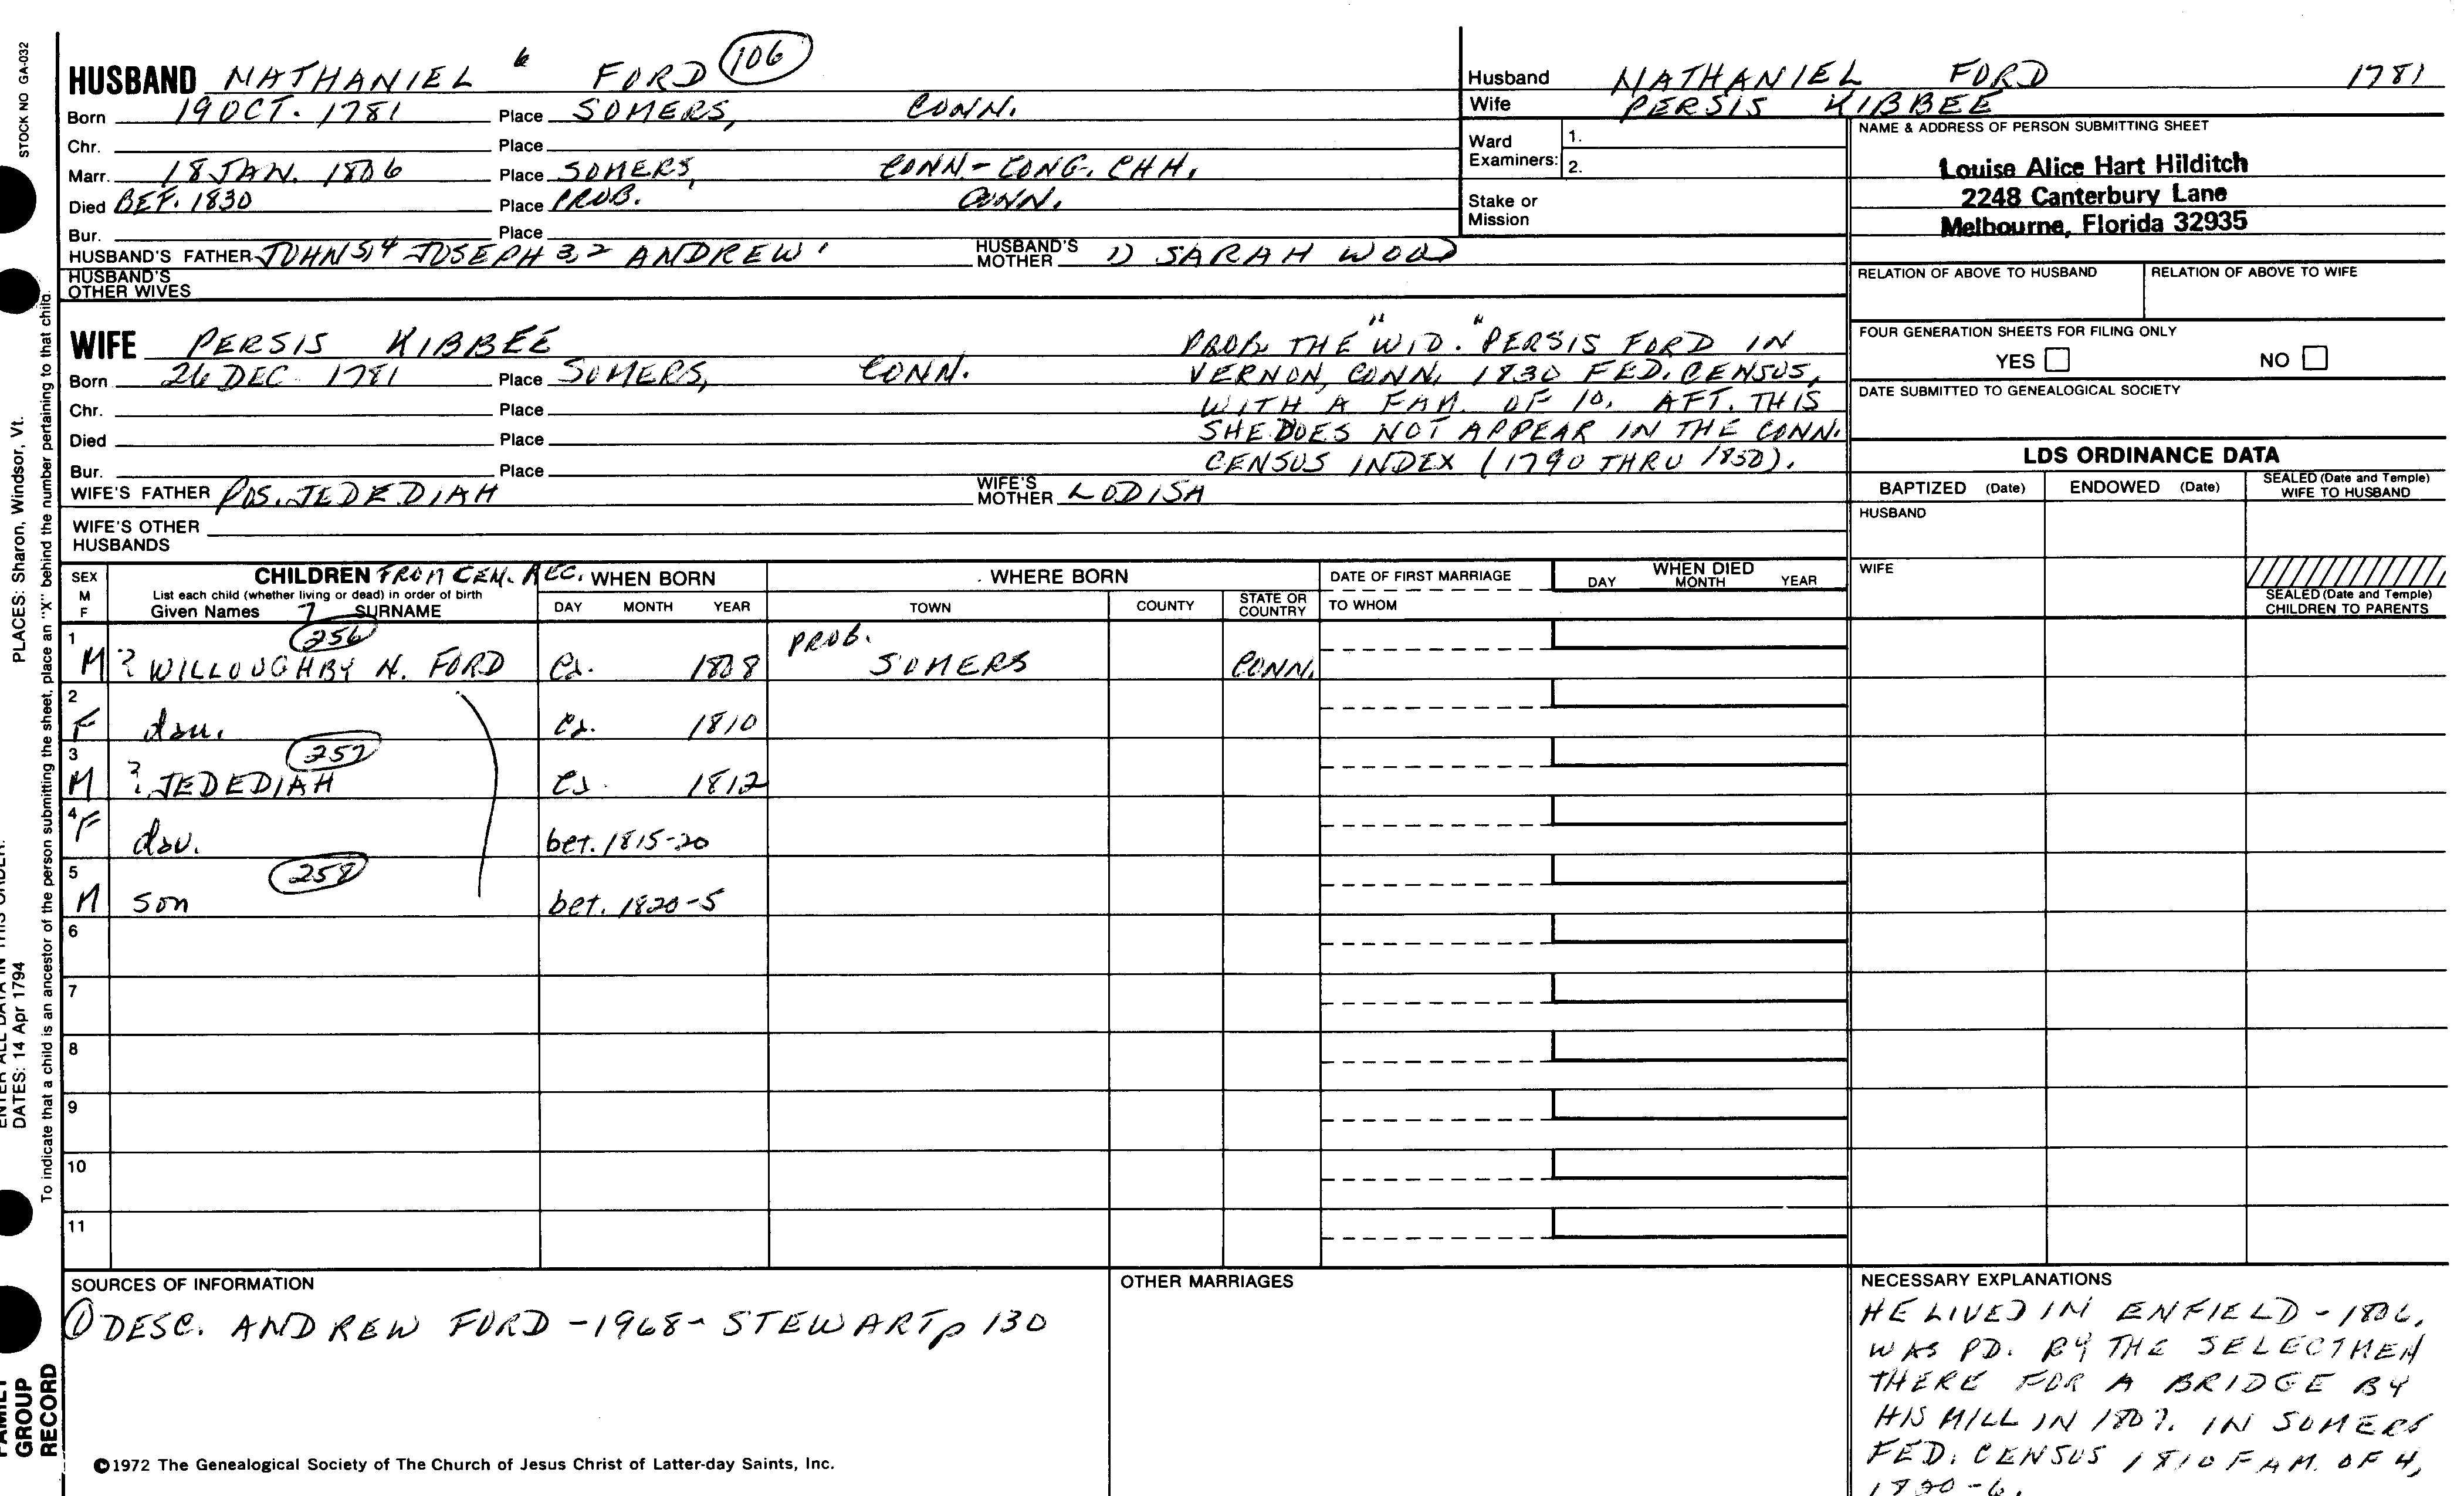 HUSBAND NATHANIEL 6 FORD 106
Born 19 OCT. 1781 Place SOMERS, CONN.
Chr. Place
Marr. 18 JAN. 1806 Place SOMERS, CONN - CONG. CHH.
Died BEF. 1830 Place PROB. CONN.
Bur. Place
HUSBAND'S FATHER JOHN 5,4 JOSEPH 3,2 ANDREW 1 HUSBAND'S MOTHER 1) SARAH WOOD
HUSBAND'S OTHER WIVES
Husband NATHANIEL FORD 1781
Wife PERSIS KIBBEE
Ward Examiners: 1.
2.
Stake or Mission
NAME & ADDRESS OF PERSON SUBMITTING SHEET
Louise Alice Hart Hilditch
2248 Canterbury Lane
Melbourne, Florida 32935
RELATION OF ABOVE TO HUSBAND RELATION OF ABOVE TO WIFE
FOUR GENERATION SHEETS FOR FILING ONLY
YES NO
DATE SUBMITTED TO GENEALOGICAL SOCIETY
WIFE PERSIS KIBBEE
Born 26 DEC. 1781 Place SOMERS, CONN.
Chr. Place
Died Place
Bur. Place
WIFE'S FATHER POS. JEDEDIAH WIFE'S MOTHER LODISA
WIFE'S OTHER HUSBANDS
PROB. THE "WID." PERSIS FORD IN
VERNON, CONN. 1830 FED. CENSUS,
WITH A FAM. OF 10. AFT. THIS
SHE DOES NOT APPEAR IN THE CONN.
CENSUS INDEX (1790 THRU 1850).
LDS ORDINANCE DATA
BAPTIZED (Date) ENDOWED (Date) SEALED (Date and Temple) WIFE TO HUSBAND
HUSBAND
WIFE
SEALED (Date and Temple) CHILDREN TO PARENTS
SEX M F CHILDREN FROM CEN. REC. WHEN BORN WHERE BORN DATE OF FIRST MARRIAGE WHEN DIED
List each child (whether living or dead) in order of birth
Given Names 7 SURNAME DAY MONTH YEAR TOWN COUNTY STATE OR COUNTRY TO WHOM DAY MONTH YEAR
1 M 256 ? WILLOUGHBY N. FORD Ca. 1808 PROB. SOMERS CONN.
2 F dau. Ca. 1810
3 M 257 ? JEDEDIAH Ca. 1812
4 F dau. bet. 1815-20
5 M 258 son bet. 1820-5
6
7
8
9
10
11
SOURCES OF INFORMATION
① DESC. ANDREW FORD - 1968 - STEWART p 130
OTHER MARRIAGES
NECESSARY EXPLANATIONS
HE LIVED IN ENFIELD - 1806,
WAS PD. BY THE SELECTMEN
THERE FOR A BRIDGE BY
HIS MILL IN 1807. IN SOMERS
FED. CENSUS 1810 FAM. OF 4,
1820-6.
©1972 The Genealogical Society of The Church of Jesus Christ of Latter-day Saints, Inc.
STOCK NO GA-032
PLACES: Sharon, Windsor, Vt.
ENTER ALL DATA IN THIS ORDER:
DATES: 14 Apr 1794
To indicate that a child is an ancestor of the person submitting the sheet, place an "X" behind the number pertaining to that child.
FAMILY
GROUP
RECORD